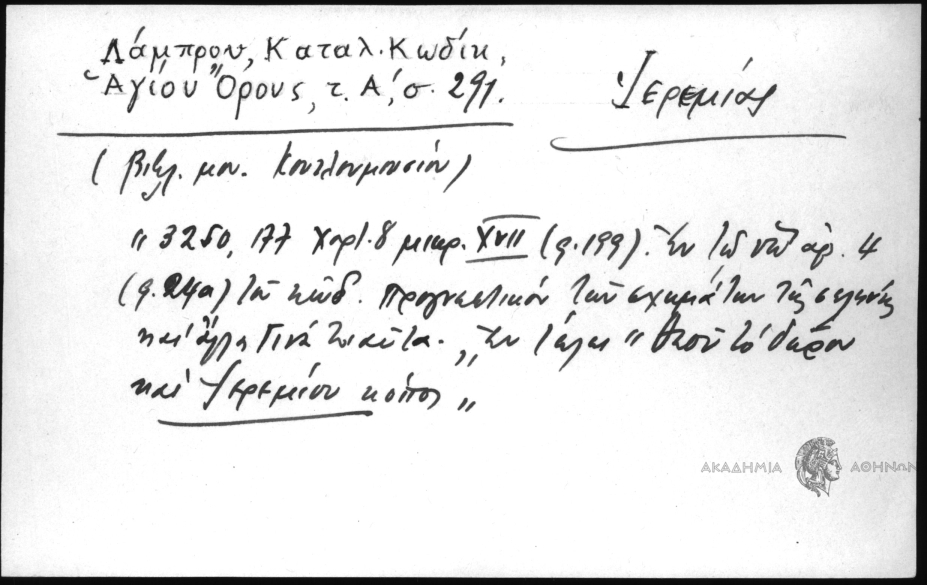 Λάμπρου, Καταλ. Κωδίκ,
Ἁγίου Ὄρους, τ. Α', σ. 291.
Ἱερεμίας
(Βιβλ. μον. Κουτλουμουσίου)
" 3250, 177 Χαρτ. 8 μικρ. XVII (φ. 199). Ἐν τῷ ὑπ' ἀρ. 4
(φ. 24α) τοῦ κώδ. προγνωστικόν τῶν σχημάτων τῆς σελήνης
καί ἄλλα τινά τοιαῦτα. „ Ἐν τέλει " Θεοῦ τό δῶρον
καί Ἱερεμίου κόπος „
ΑΚΑΔΗΜΙΑ ΑΘΗΝΩΝ